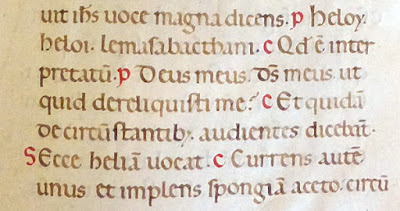 uit ih̅s uoce magna dicens. p heloy.
heloi. lemasabacthani. c Qd̅ e̅ inter
pretatu̅. p Deus meus. ds̅ meus. ut
quid dereliquisti me? c Et quida̅
de circu̅stantib; audientes diceba̅t.
S Ecce helia̅ uocat. c Currens aute̅
unus et implens spongia̅ aceto. circu̅